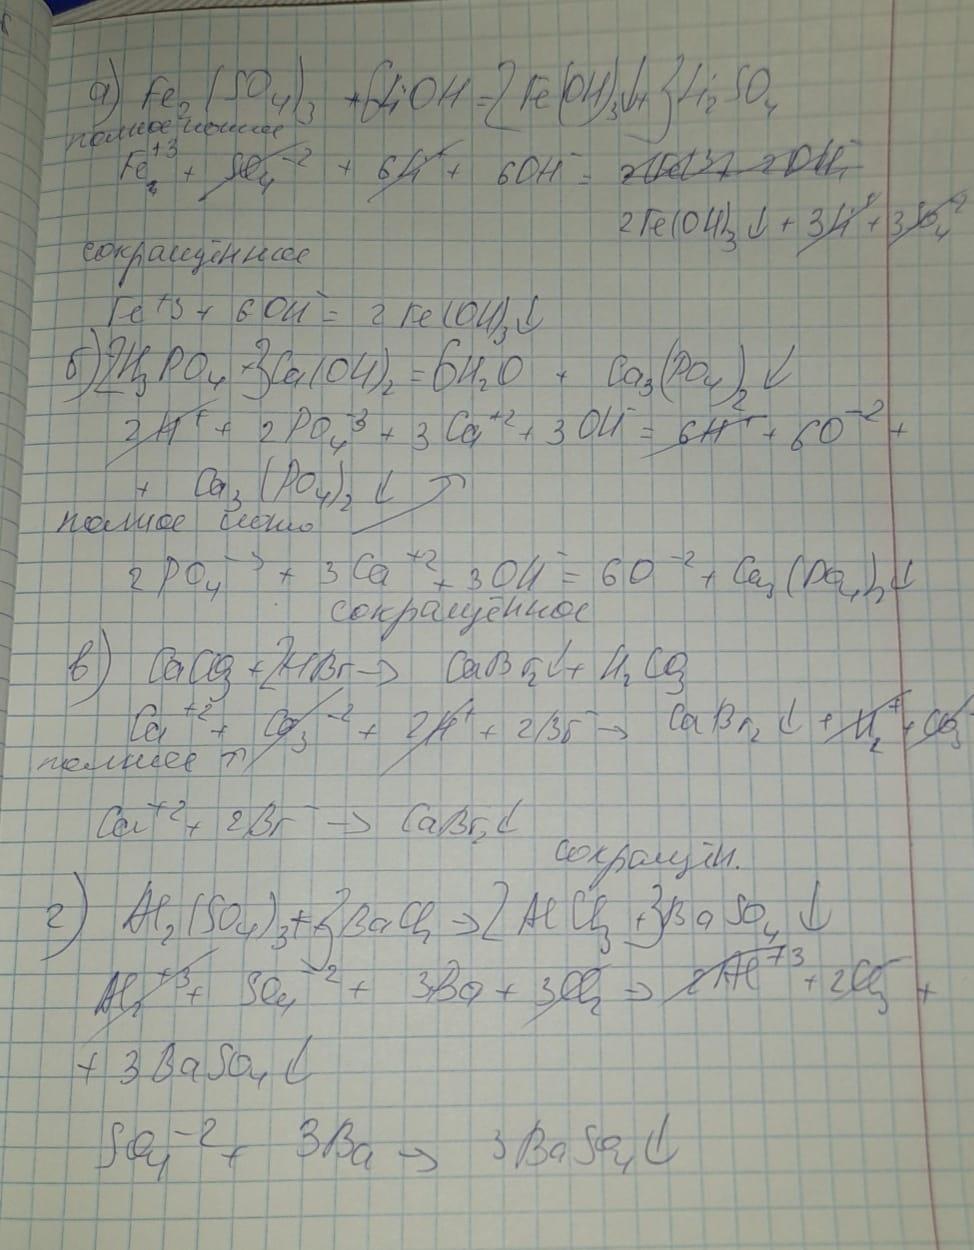 а) Fe₂(SO₄)₃ + 6LiOH = 2Fe(OH)₃↓ + 3Li₂SO₄
полное ионное
Fe₂⁺³ + SO₄⁻² + 6Li⁺ + 6OH⁻ =
2Fe(OH)₃↓ + 3Li⁺ + 3SO₄⁻²
сокращённое
Fe⁺³ + 6OH⁻ = 2Fe(OH)₃↓
б) 2H₃PO₄ + 3Ca(OH)₂ = 6H₂O + Ca₃(PO₄)₂↓
2H⁺ + 2PO₄⁻³ + 3Ca⁺² + 3OH⁻ = 6H⁺ + 6O⁻² +
+ Ca₃(PO₄)₂↓
полное ионно
2PO₄⁻³ + 3Ca⁺² + 3OH⁻ = 6O⁻² + Ca₃(PO₄)₂↓
сокращённое
в) CaCO₃ + 2HBr → CaBr₂↓ + H₂CO₃
Ca⁺² + CO₃⁻² + 2H⁺ + 2Br⁻ → CaBr₂↓ + H₂⁺ + CO₃⁻
полное ↑
Ca⁺² + 2Br⁻ → CaBr₂↓
сокращён.
г) Al₂(SO₄)₃ + 3BaCl₂ → 2AlCl₃ + 3BaSO₄↓
Al₂⁺³ + SO₄⁻² + 3Ba + 3Cl₂ → 2Al⁺³ + 2Cl₃⁻ +
+ 3BaSO₄↓
SO₄⁻² + 3Ba → 3BaSO₄↓